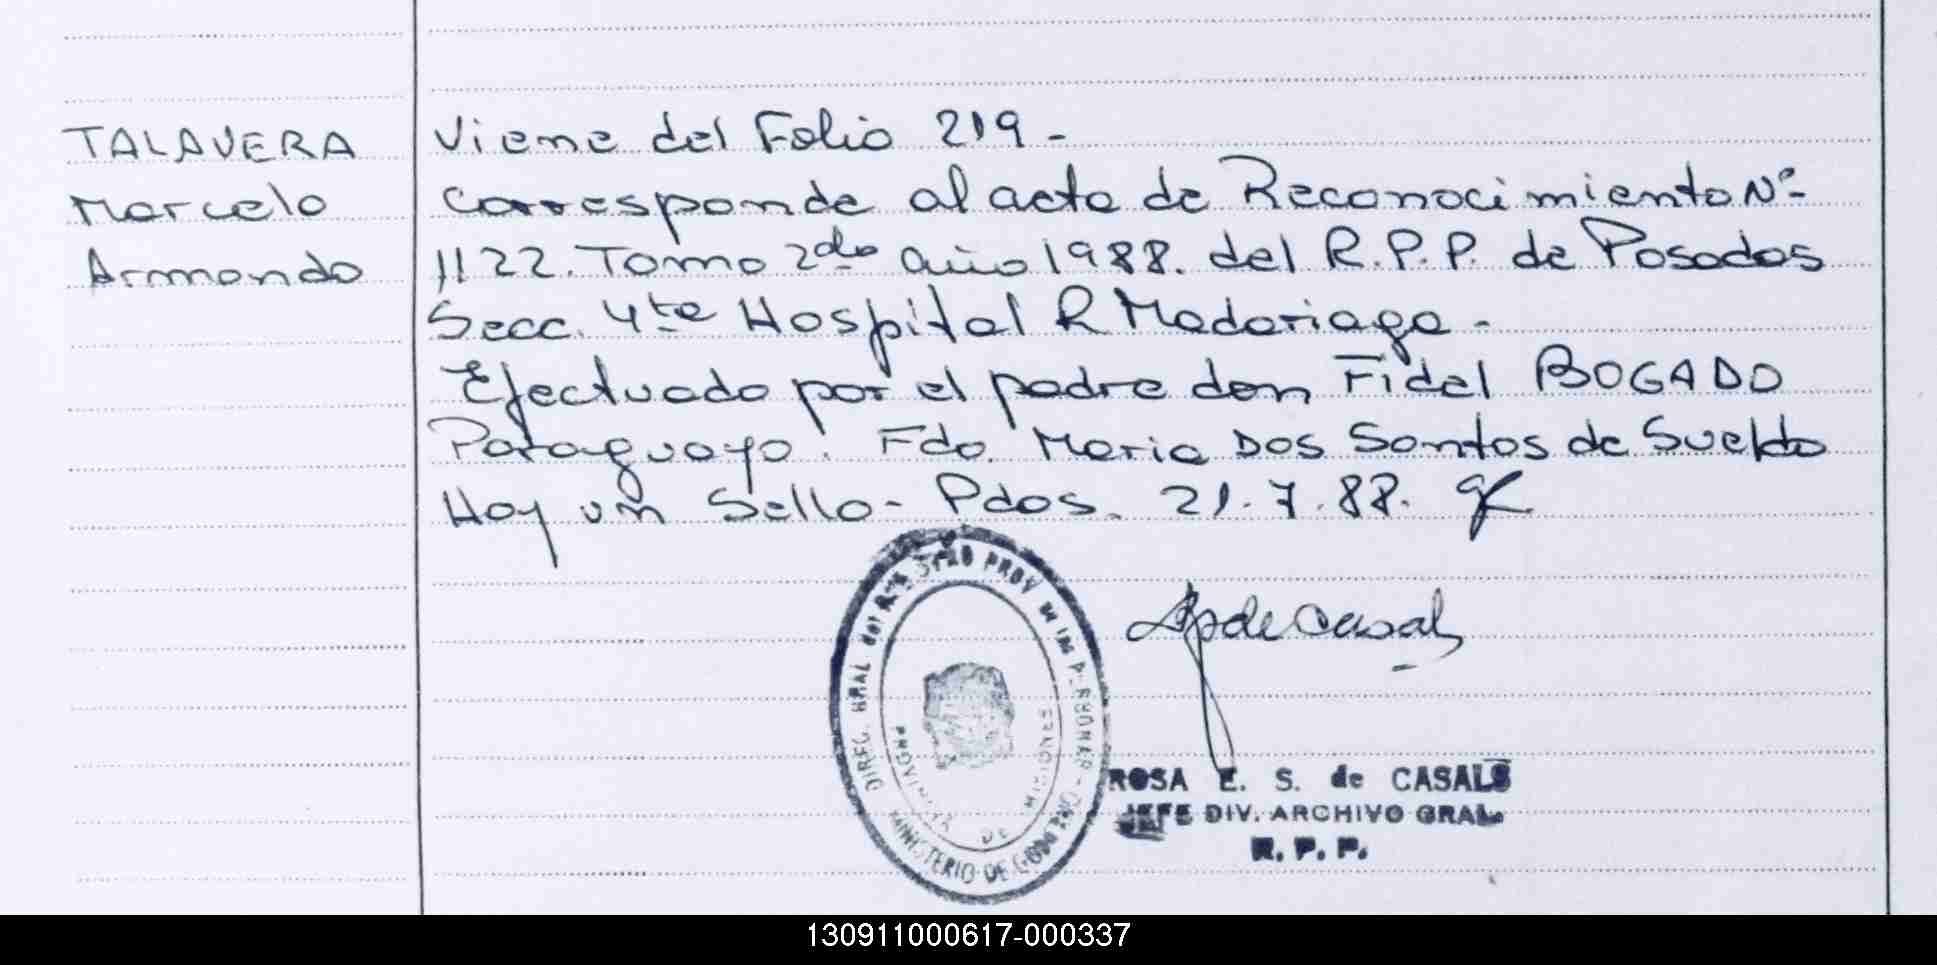 TALAVERA
Marcelo
Armando
Viene del Folio 219 -
Corresponde al acta de Reconocimiento Nº
1122. Tomo 2do año 1988. del R.P.P. de Posadas
Secc. 4ta Hospital R Madariaga -
Efectuado por el padre don Fidel BOGADO
Paraguayo. Fdo. Maria Dos Santos de Sueldo
Hay un Sello - Pdas. 21.7.88.
DIREC. GRAL del REGISTRO PROV de las PERSONAS -
MINISTERIO DE GOBIERNO
PROVINCIA DE MISIONES
de Casals
ROSA E. S. de CASALS
JEFE DIV. ARCHIVO GRAL.
R. P. P.
130911000617-000337